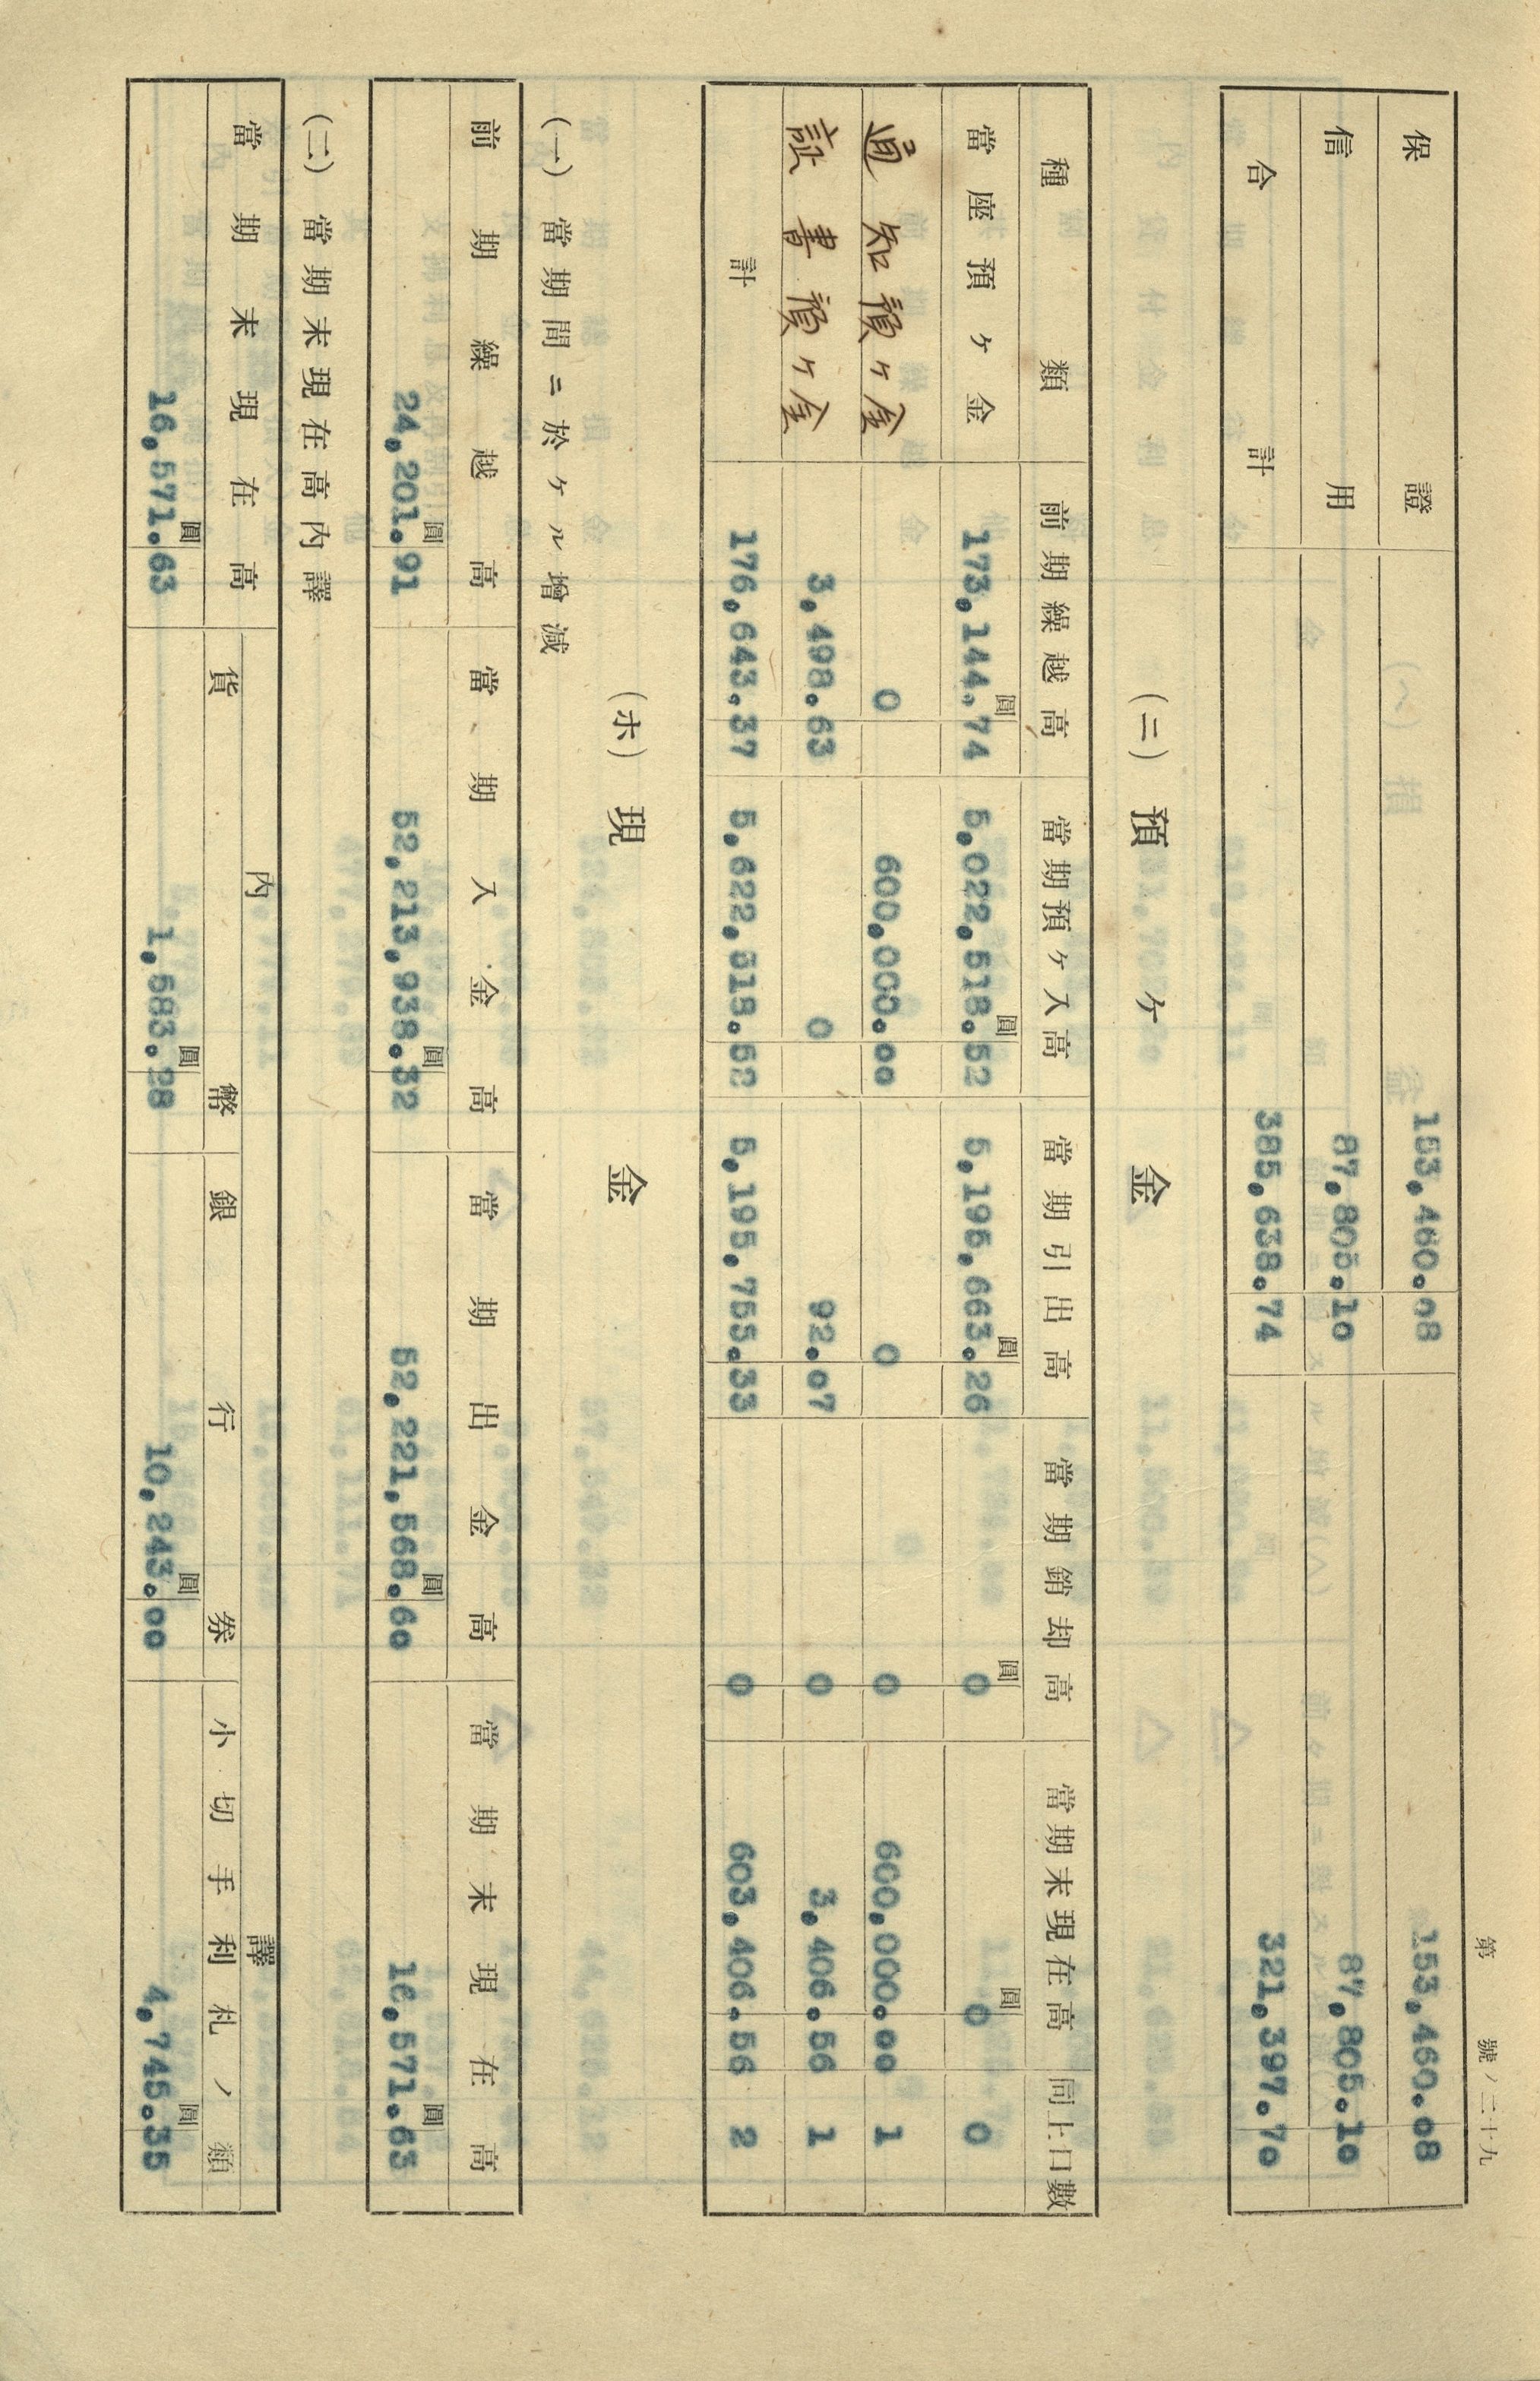 第 號ノ二十九
保證 153,460.08 153,460.08
信用 87,805.10 87,805.10
合計 385,638.74 321,397.70
(ニ) 預ケ金
種類 前期繰越高 當期預ケ入高 當期引出高 當期銷却高 當期末現在高 同上口數
當座預ケ金 圓 173,144.74 圓 5,022,518.52 圓 5,195,663.26 圓 0 圓 0 0
通知預ケ金 0 600,000.00 0 0 600,000.00 1
証書預ケ金 3,498.63 0 92.07 0 3,406.56 1
計 176,643.37 5,622,518.52 5,195,755.33 0 603,406.56 2
(ホ) 現金
(一) 當期間ニ於ケル增減
前期繰越高 當期入金高 當期出金高 當期末現在高
圓 24,201.91 圓 52,213,938.32 圓 52,221,568.60 圓 16,571.63
(二) 當期末現在高內譯
當期末現在高 內譯
貨幣 銀行券 小切手利札ノ類
圓 16,571.63 圓 1,583.28 圓 10,243.00 圓 4,745.35